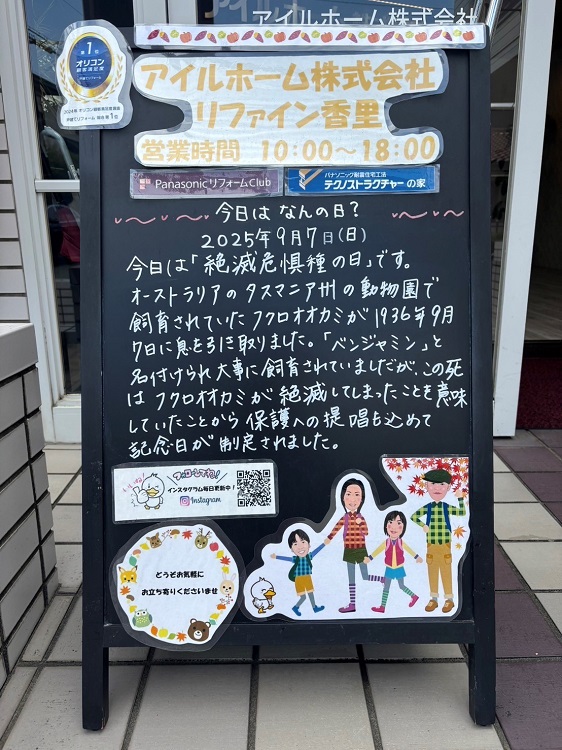 アイルホーム株式会社
第1位
オリコン
顧客満足度
戸建てリフォーム
2024年 オリコン顧客満足度調査
戸建てリフォーム 総合 第1位
アイルホーム株式会社
リファイン香里
営業時間 10:00~18:00
PanasonicリフォームClub
パナソニック耐震住宅工法
テクノストラクチャーの家
今日は なんの日?
2025年9月7日(日)
今日は「絶滅危惧種の日」です。
オーストラリアのタスマニア州の動物園で
飼育されていたフクロオオカミが1936年9月
7日に息を引き取りました。「ベンジャミン」と
名付けられ大事に飼育されていましたが、この死
はフクロオオカミが絶滅してしまったことを意味
していたことから保護への提唱も込めて
記念日が制定されました。
フォローしてね!
インスタグラム毎日更新中!
Instagram
どうぞお気軽に
お立ち寄りくださいませ